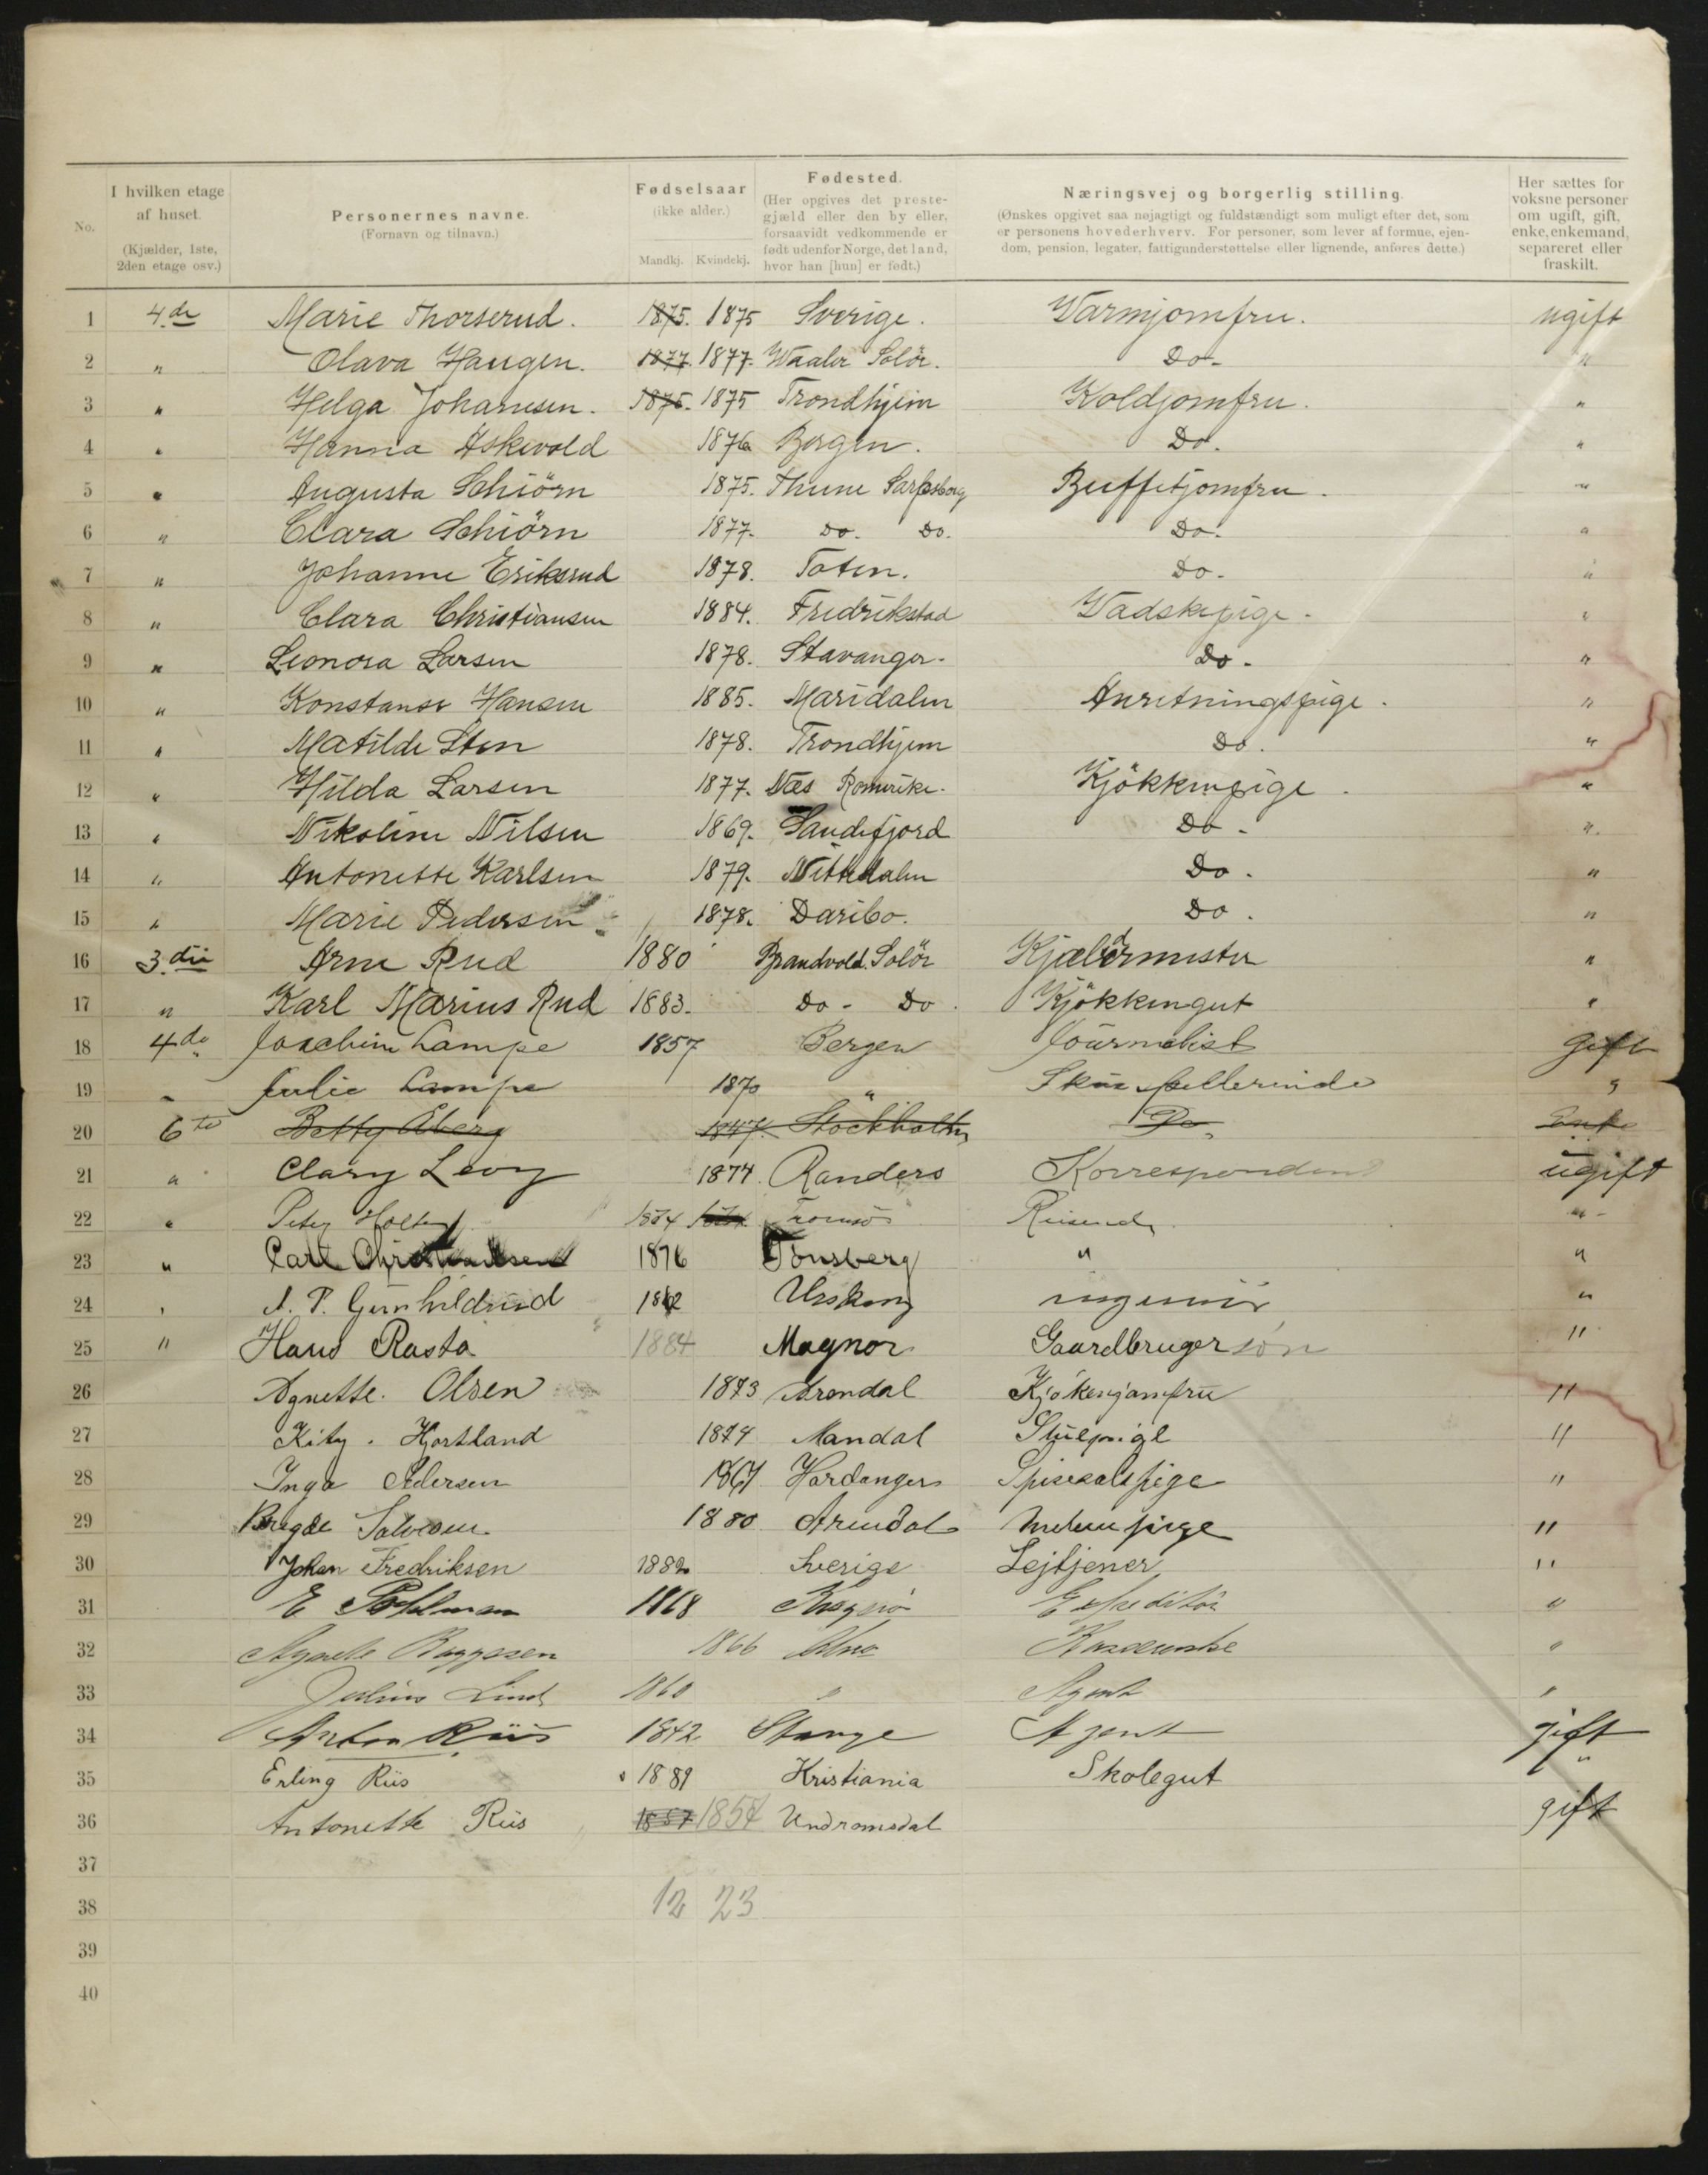 No.
I hvilken etage af huset.
(Kjælder, 1ste, 2den etage osv.)
Personernes navne.
(Fornavn og tilnavn.)
Fødselsaar
(ikke alder.)
Mandkj. Kvindekj.
Fødested.
(Her opgives det prestegjæld eller den by eller, forsaavidt vedkommende er født udenfor Norge, det land, hvor han [hun] er født.)
Næringsvej og borgerlig stilling.
(Ønskes opgivet saa nøjagtigt og fuldstændigt som muligt efter det, som er personens hovederhverv. For personer, som lever af formue, ejendom, pension, legater, fattigunderstøttelse eller lignende, anføres dette.)
Her sættes for voksne personer om ugift, gift, enke, enkemand, separeret eller fraskilt.
1 4.de Marie Thorserud. 1875. 1875 Sverige. Varmjomfru. ugift
2 " Olava Haugen. 1877. 1877. Waaler Solör. Do. "
3 " Helga Johannesen. 1875. 1875 Trondhjem Koldjomfru. "
4 " Hanna Askevold 1876 Bergen. Do. "
5 " Augusta Schiörn 1875. Thune Sarpsborg Buffetjomfru. "
6 " Clara Schiörn 1877. Do. Do. Do. "
7 " Johanne Eriksrud 1878. Toten. Do. "
8 " Clara Christiansen 1884. Fredrikstad Vadskepige. "
9 " Leonora Larsen 1878. Stavanger. Do. "
10 " Konstanse Hansen 1885. Maridalen Anretningspige. "
11 " Matilde Sten 1878. Trondhjem Do. "
12 " Hilda Larsen 1877. Næs Romerike. Kjökkenpige. "
13 " Nikoline Nilsen 1869. Sandefjord Do. "
14 " Antonette Karlsen 1879. Nittedalen Do. "
15 " Marie Pedersen 1878. Do. "
16 3.die Arne Rud 1880 Brandvold. Solör Kjældermester "
17 " Karl Marius Rud 1883. Do. Do. Kjökkengut "
18 4de Joachim Lampe 1857 Bergen Journalist gift
19 " Julie Lampe 1870 " Skuespillerinde "
20 6te Betty Åberg 1847. Stockholm Do. Enke
21 " Clary Levy 1874. Randers Korrespondent ugift
22 " Peter Holten 1874 Tromsö Reisende "
23 " Carl Christiansen 1876 Tönsberg " "
24 " A. P. Gunhildrud 1862 Urskoug ingeniör "
25 " Hans Rasta 1884 Magnor Gaardbruger sön "
26 Agnette. Olsen 1873 Arendal Kjökenjomfru "
27 Kity. Hjortland 1874 Mandal Stuepige "
28 Inga Pedersen 1867 Hardanger Spisesalspige "
29 Salvesen 1880 Arendal "
30 Johan Fredriksen 1882 Sverige Lejtjener "
31 E 1868 Kragerö Expeditör "
32 Agnete Baggesen 1866 "
33 Julius Lund 1860 " Agent "
34 Anton Riis 1842 Stange Agent gift
35 Erling Riis 1889 Kristiania Skolegut "
36 Antonette Riis 1857 1857 gift
37
38 12 23
39
40